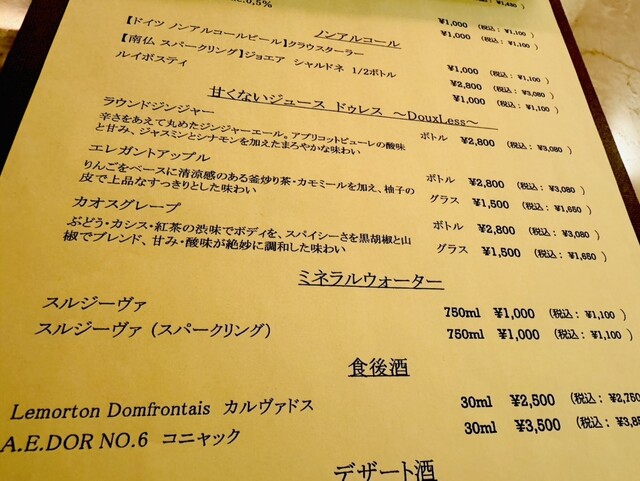 0.5%
¥1,000 (税込: ¥1,100 )
ノンアルコール
¥1,000 (税込: ¥1,100 )
【ドイツ ノンアルコールビール】クラウスターラー
¥1,000 (税込: ¥1,100 )
【南仏 スパークリング】ジョエア シャルドネ 1/2ボトル
¥2,800 (税込: ¥3,080 )
ルイボスティ
¥1,000 (税込: ¥1,100 )
甘くないジュース ドゥレス ～DouxLess～
ラウンドジンジャー
ボトル ¥2,800 (税込: ¥3,080 )
辛さをあえて丸めたジンジャーエール。アプリコットピューレの酸味
と甘み、ジャスミンとシナモンを加えたまろやかな味わい
エレガントアップル
ボトル ¥2,800 (税込: ¥3,080 )
りんごをベースに清涼感のある釜炒り茶・カモミールを加え、柚子の
グラス ¥1,500 (税込: ¥1,650 )
皮で上品なすっきりとした味わい
カオスグレープ
ボトル ¥2,800 (税込: ¥3,080 )
ぶどう・カシス・紅茶の渋味でボディを、スパイシーさを黒胡椒と山
グラス ¥1,500 (税込: ¥1,650 )
椒でブレンド、甘み・酸味が絶妙に調和した味わい
ミネラルウォーター
スルジーヴァ 750ml ¥1,000 (税込: ¥1,100 )
スルジーヴァ (スパークリング) 750ml ¥1,000 (税込: ¥1,100 )
食後酒
Lemorton Domfrontais カルヴァドス 30ml ¥2,500 (税込: ¥2,750
A.E.DOR NO.6 コニャック 30ml ¥3,500 (税込: ¥3,85
デザート酒